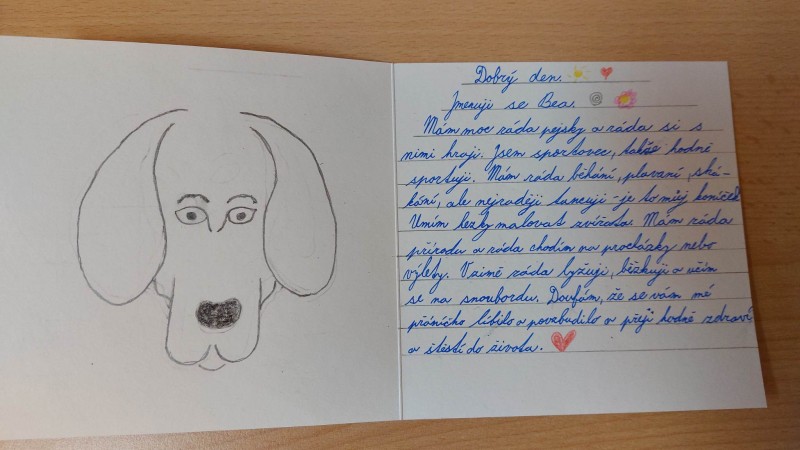 Dobrý den.
Jmenuji se Bea.
Mám moc ráda pejsky a ráda si s
nimi hraji. Jsem sportovec, takže hodně
sportuji. Mám ráda běhání, plavaní, ská-
kání, ale nejraději tancuji - je to můj koníček
Umím hezky malovat zvířata. Mám ráda
přírodu a ráda chodím na procházky nebo
výlety. V zimě ráda lyžuji, běžkuji a učím
se na snoubordu. Doufám, že se vám mé
přáníčko líbilo a povzbudilo a přeji hodně zdraví
a štěstí do života.